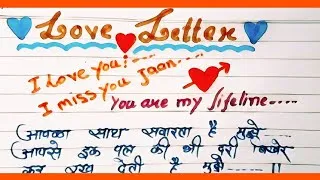 Love Letter
I love you!....
I miss you Jaan....
You are my lifeline....
आपका साथ सवारता है मुझे
आपसे इक पल की भी दूरी बिखेर
कर रख देती है मुझे ....!!